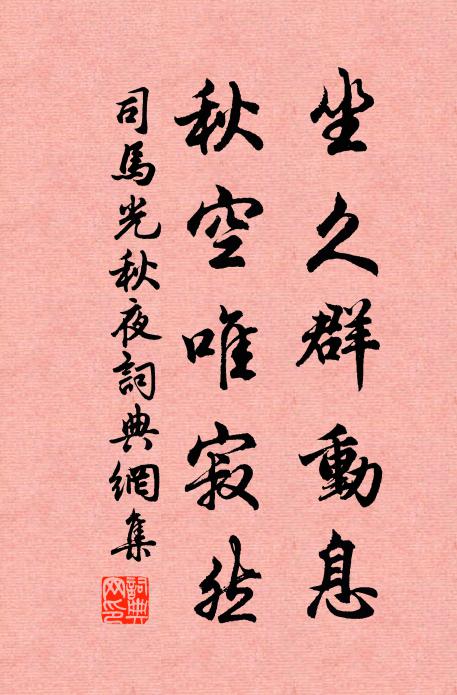 坐久群動息
秋空唯寂然
司馬光秋夜詞典網集
詞典网印